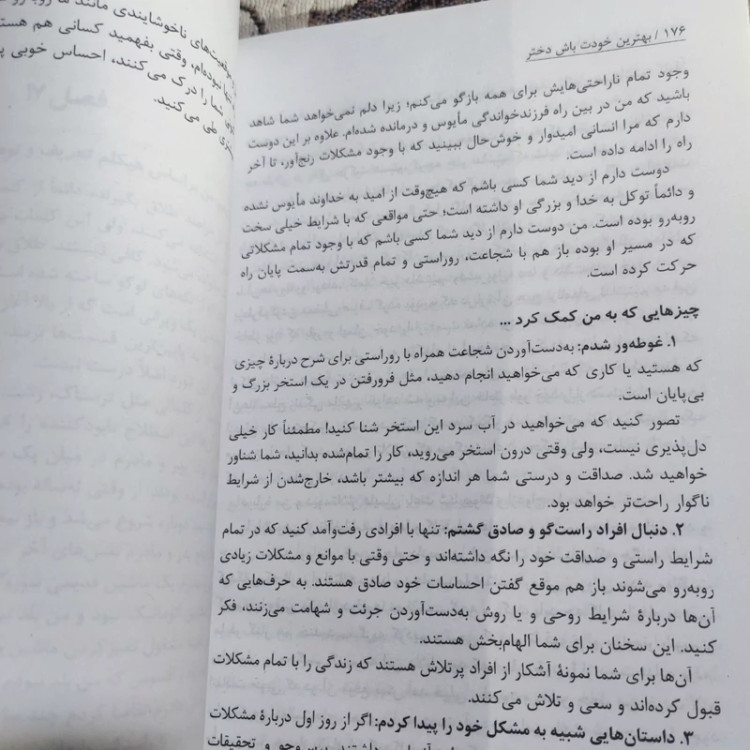 ۱۷۶ / بهترین خودت باش دختر
وجود تمام ناراحتی‌هایش برای همه بازگو می‌کنم؛ زیرا دلم نمی‌خواهد شما شاهد
باشید که من در بین راه فرزندخواندگی مأیوس و درمانده شده‌ام. علاوه بر این دوست
دارم که مرا انسانی امیدوار و خوش‌حال ببینید که با وجود مشکلات رنج‌آور، تا آخر
راه را ادامه داده است.
دوست دارم از دید شما کسی باشم که هیچ‌وقت از امید به خداوند مأیوس نشده
و دائماً توکل به خدا و بزرگی او داشته است؛ حتی مواقعی که با شرایط خیلی سخت
روبه‌رو بوده است. من دوست دارم از دید شما کسی باشم که با وجود تمام مشکلاتی
که در مسیر او بوده باز هم با شجاعت، روراستی و تمام قدرتش به‌سمت پایان راه
حرکت کرده است.
چیزهایی که به من کمک کرد ...
۱. غوطه‌ور شدم: به‌دست‌آوردن شجاعت همراه با روراستی برای شرح دربارهٔ چیزی
که هستید یا کاری که می‌خواهید انجام دهید، مثل فرورفتن در یک استخر بزرگ و
بی‌پایان است.
تصور کنید که می‌خواهید در آب سرد این استخر شنا کنید! مطمئناً کار خیلی
دل‌پذیری نیست، ولی وقتی درون استخر می‌روید، کار را تمام‌شده بدانید، شما شناور
خواهید شد. صداقت و درستی شما هر اندازه که بیشتر باشد، خارج‌شدن از شرایط
ناگوار راحت‌تر خواهد بود.
۲. دنبال افراد راست‌گو و صادق گشتم: تنها با افرادی رفت‌وآمد کنید که در تمام
شرایط راستی و صداقت خود را نگه داشته‌اند و حتی وقتی با موانع و مشکلات زیادی
روبه‌رو می‌شوند باز هم موقع گفتن احساسات خود صادق هستند. به حرف‌هایی که
آن‌ها دربارهٔ شرایط روحی و یا روش به‌دست‌آوردن جرئت و شهامت می‌زنند، فکر
کنید. این سخنان برای شما الهام‌بخش هستند.
آن‌ها برای شما نمونهٔ آشکار از افراد پرتلاش هستند که زندگی را با تمام مشکلات
قبول کرده‌اند و سعی و تلاش می‌کنند.
۳. داستان‌هایی شبیه به مشکل خود را پیدا کردم: اگر از روز اول دربارهٔ مشکلات
داشتند پرس‌وجو و تحقیقات
موقعیت‌های ناخوشایندی مانند ما روبه‌رو
نبوده‌ام، وقتی بفهمید کسانی هم هستند
شما را درک می‌کنند، احساس خوبی
طی می‌کنید.